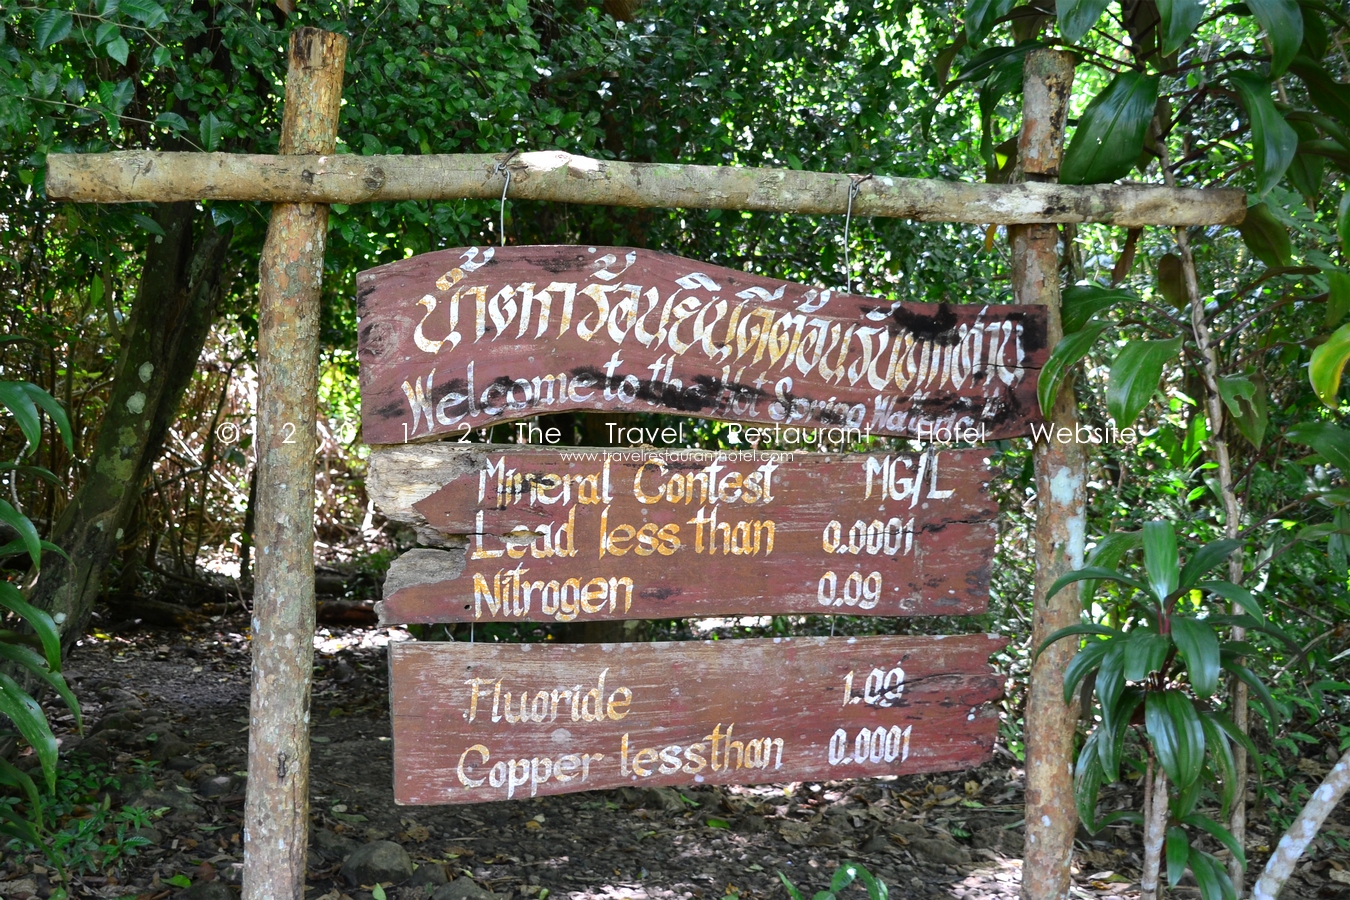 น้ำตกร้อนยินดีต้อนรับทุกท่าน
Welcome to the Hot Spring
© 2 0 1 2 The Travel Restaurant Hotel Website
www.travelrestauranthotel.com
Mineral Contest MG/L
Lead less than 0.0001
Nitrogen 0.09
Fluoride 1.09
Copper less than 0.0001